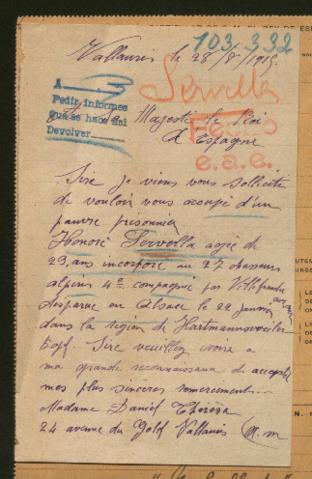 103,332
Vallauris le 28/8/1915.
Servella
A
Pedir informes
que se hace aqui
Devolver
Sa Majesté le Roi
d'Espagne
e.a.e.
Sire je viens vous solliciter
de vouloir vous occupé d'un
pauvre prisonnier
Honoré Servella agée de
23 ans incorporé au 27 chasseurs
alpins 4e compagnie par Villefranche
disparue en Alsace le 22 janvier
dans la région de Hartmannsweiler
Kopf. Sire veuillez croire a
ma grande reconnaissance de accepté
mes plus sincères remerciement
Madame Daniel Thérèsa
24 avenue du Gold Vallauris (A.m